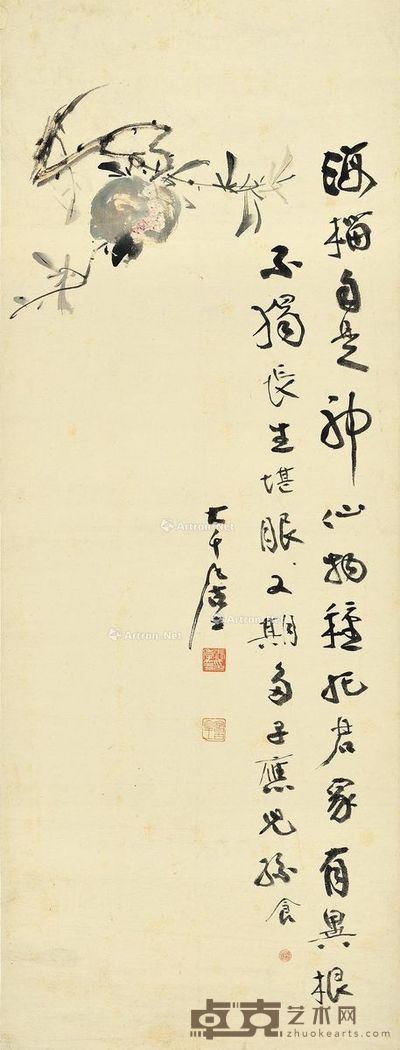 海榴自是神仙物種托君家有異根
不獨長生堪服又期多子應兒孫食
大千居士
Artron.Net
Artron.Net
卓克艺术网
zhuokearts.com